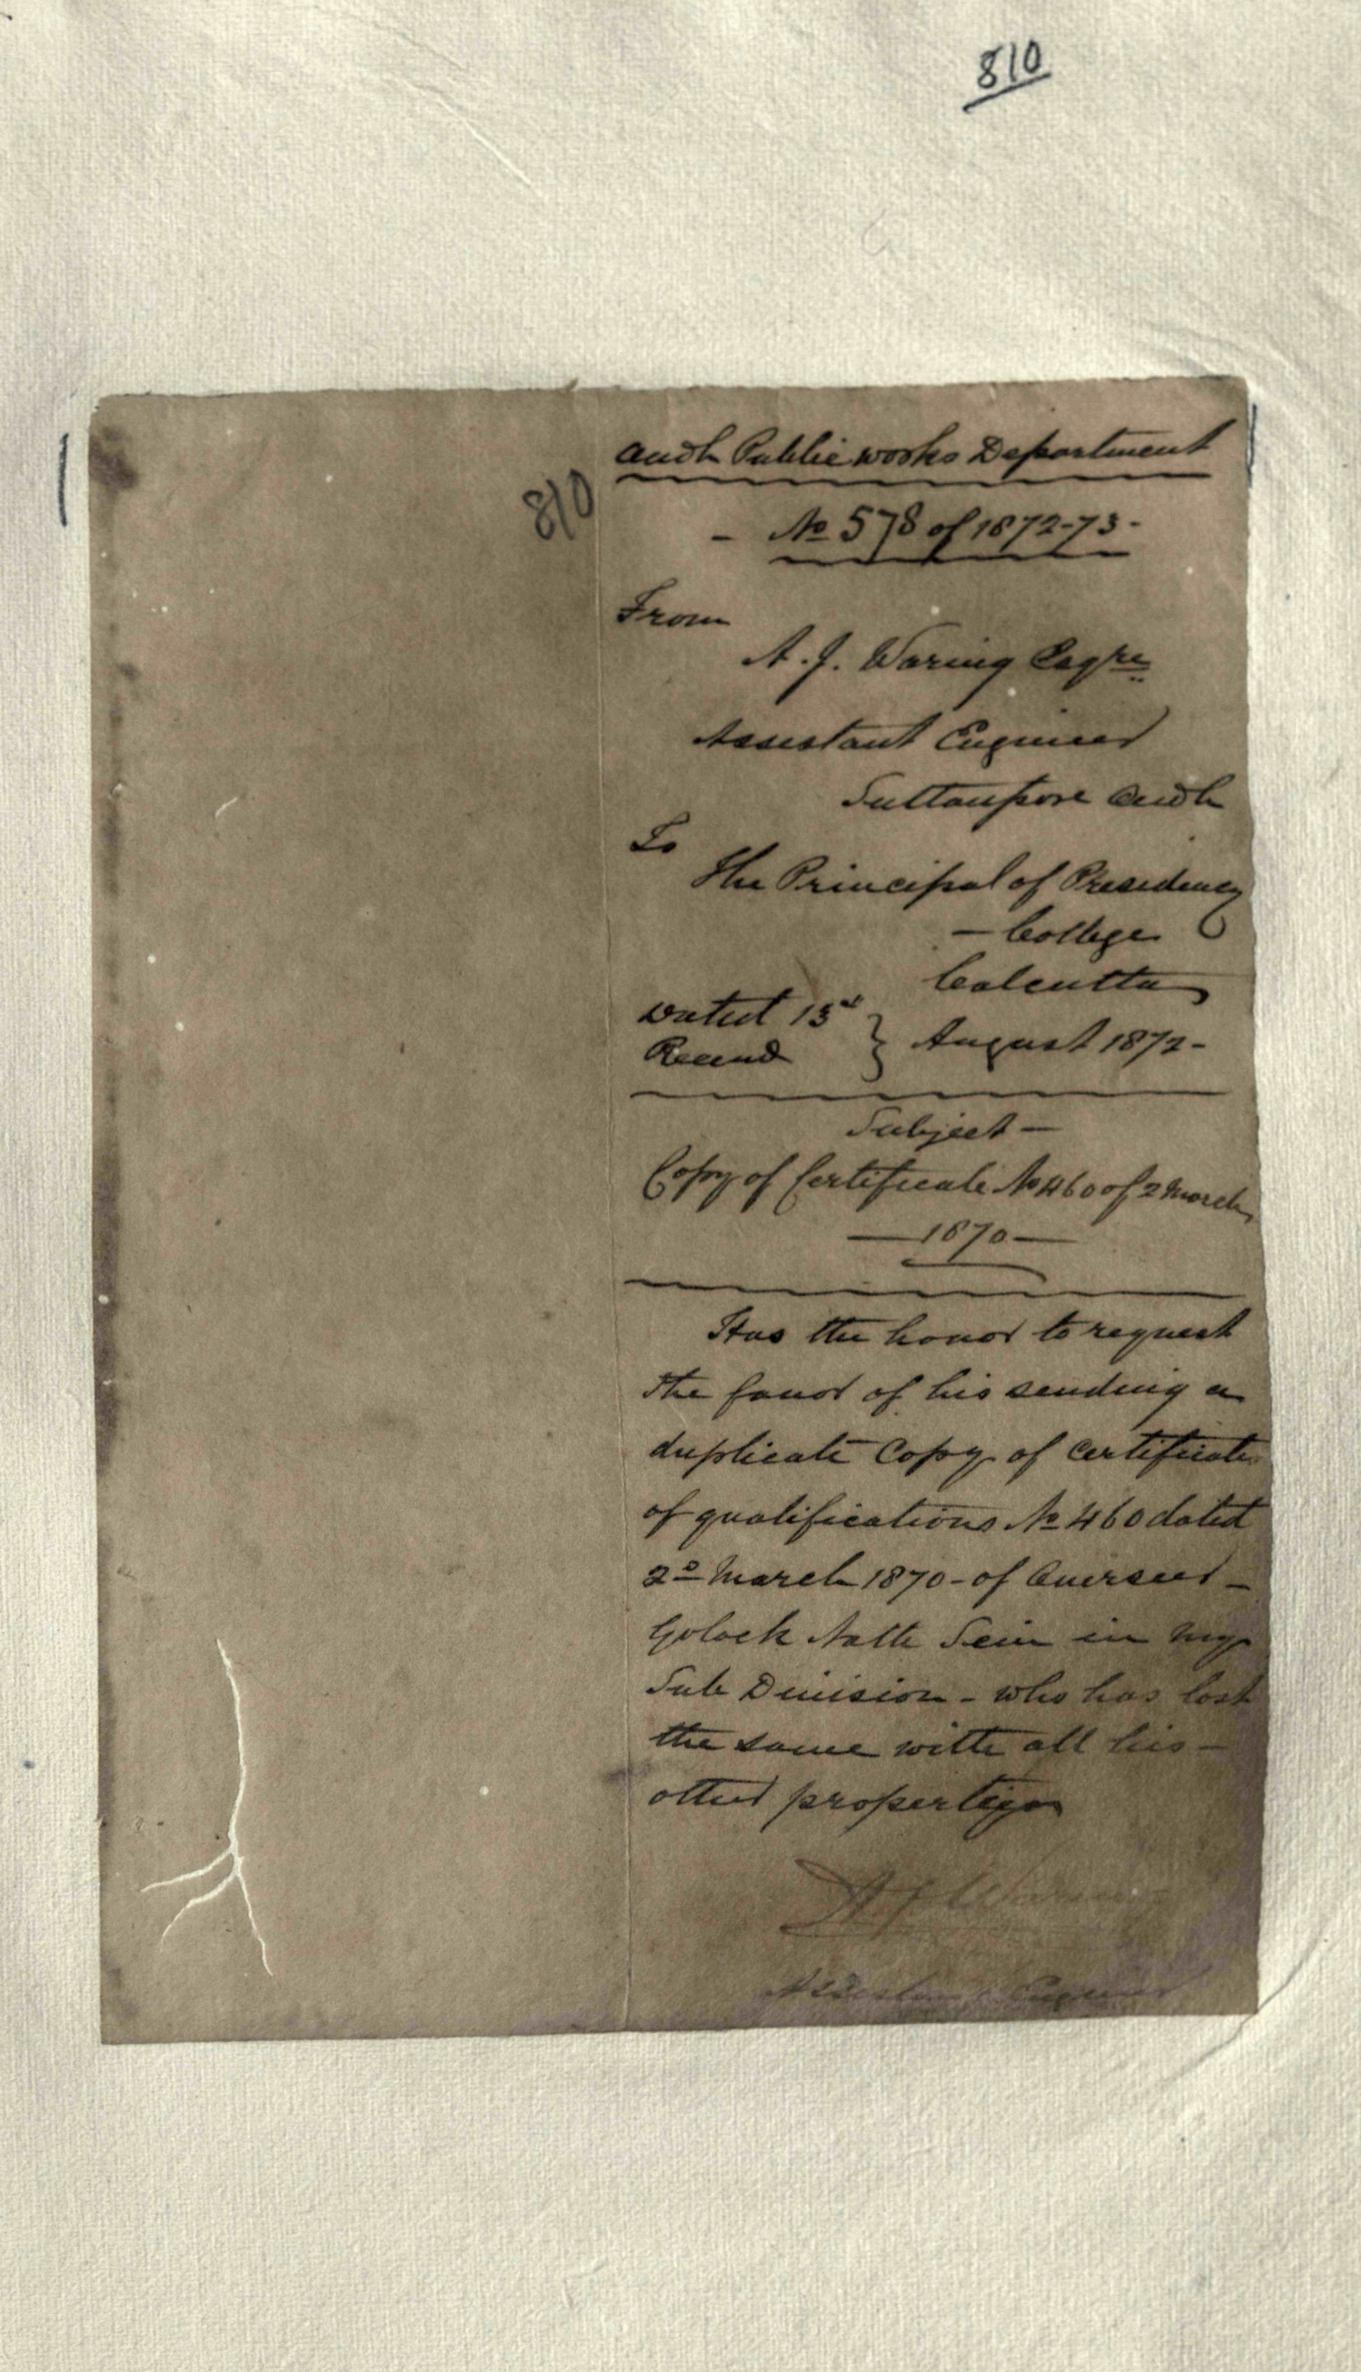 810
810
Oudh Public works Department
- No 578 of 1872-73 -
From
A. J. Waring Esqre
Assistant Engineer
Sultanpore Oudh
To
The Principal of Presidency
- College
Calcutta
Dated 13d } August 1872 -
Recend
Subject -
Copy of Certificate No 460 of 2 March
- 1870 -
Has the honor to request
the favor of his sending a
duplicate Copy of certificate
of qualifications No 460 dated
2d March 1870 - of Overseer -
Golock Nath Sein in my
Sub Division - who has lost
the same with all his -
other properties
A J Waring
Assistant Engineer